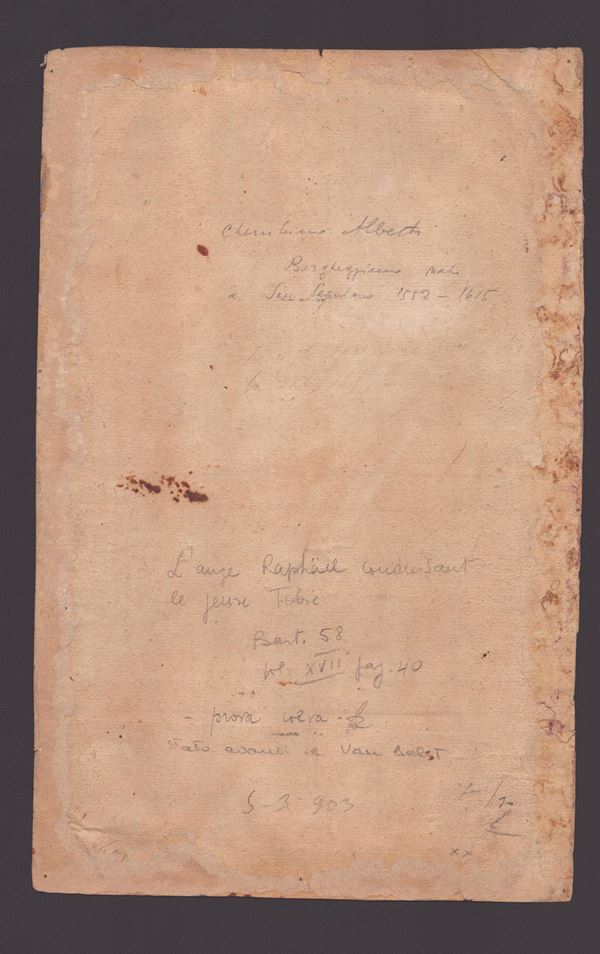 Cherubino Alberti
Borgheggiano
a San Sepolcro 1552 – 1615
L'ange Raphael conduisant
le jeune Tobie
Bart. 58
vol. XVII pag. 40
- prova
stato avanti Van
5-3 903
xx